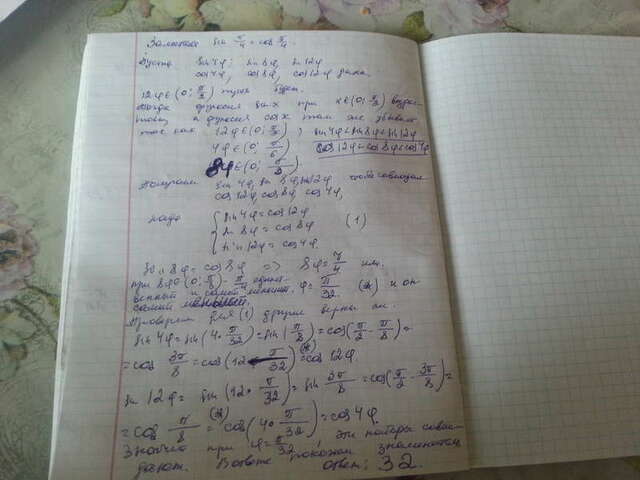 Заметим sin π/4 = cos π/4.
Пусть sin4φ; sin8φ, sin12φ
cos4φ, cos8φ, cos12φ даны.
12φ∈(0; π/2) пусть будет.
Тогда функция sin x при x∈(0; π/2) возрас-
тающ, а функция cos x там же убывает
так как 12φ∈(0; π/2), sin4φ<sin8φ<sin12φ
4φ∈(0; π/6) cos12φ<cos8φ<cos4φ
8φ∈(0; π/3)
sin4φ, sin8φ, sin12φ чтобы совпадали
cos12φ, cos8φ, cos4φ,
надо { sin4φ = cos12φ
sin8φ = cos8φ (1)
sin12φ = cos4φ.
sin8φ = cos8φ => 8φ = π/4 или
φ = π/32. (*) и он
самый
Проверим для (1) другие верны ли.
sin4φ = sin(4·π/32) = sin(π/8) = cos(π/2 - π/8) =
= cos 3π/8 = cos(12·π/32) (*)= cos12φ.
sin12φ = sin(12·π/32) = sin 3π/8 = cos(π/2 - 3π/8) =
= cos π/8 (*)= cos(4·π/32) = cos4φ
Значит при φ = π/32, эти наборы совпа-
дают. В ответе покажем знаменатель
ответ: 32.